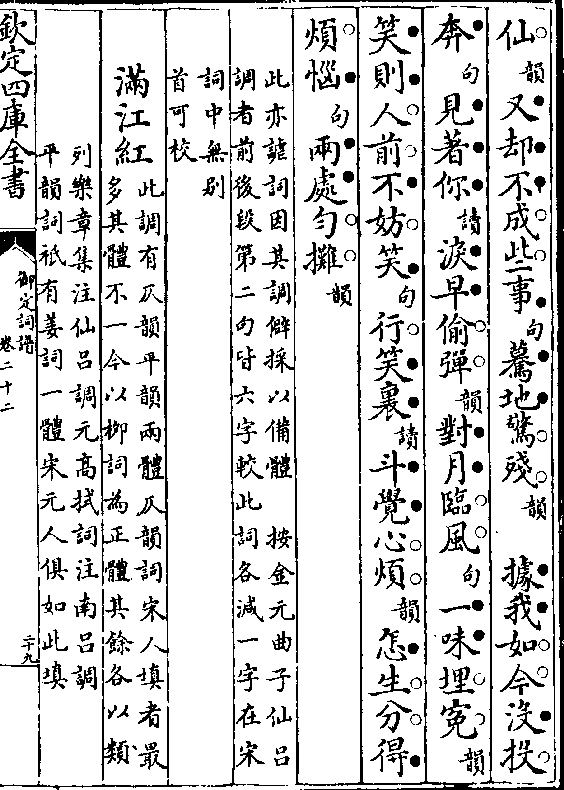 仙韻又却不成些事句驀地驚殘韻　據我如今沒投
奔句見著你讀淚早偷彈韻對月臨風句一味埋寃韻
笑則人前不妨笑句行笑裏讀斗覺心煩韻怎生分得
煩惱句兩處勻攤韻
此亦謔詞因其調僻採以備體　按金元曲子仙吕
調者前後段第二句皆六字較此詞各減一字在宋
詞中無别
首可校
滿江紅
此調有仄韻平韻兩體仄韻詞宋人填者最
多其體不一今以柳詞為正體其餘各以類
列樂章集注仙吕調元高拭詞注南吕調
平韻詞祗有姜詞一體宋元人俱如此填
欽定四庫全書
御定詞譜
卷二十二
二十九